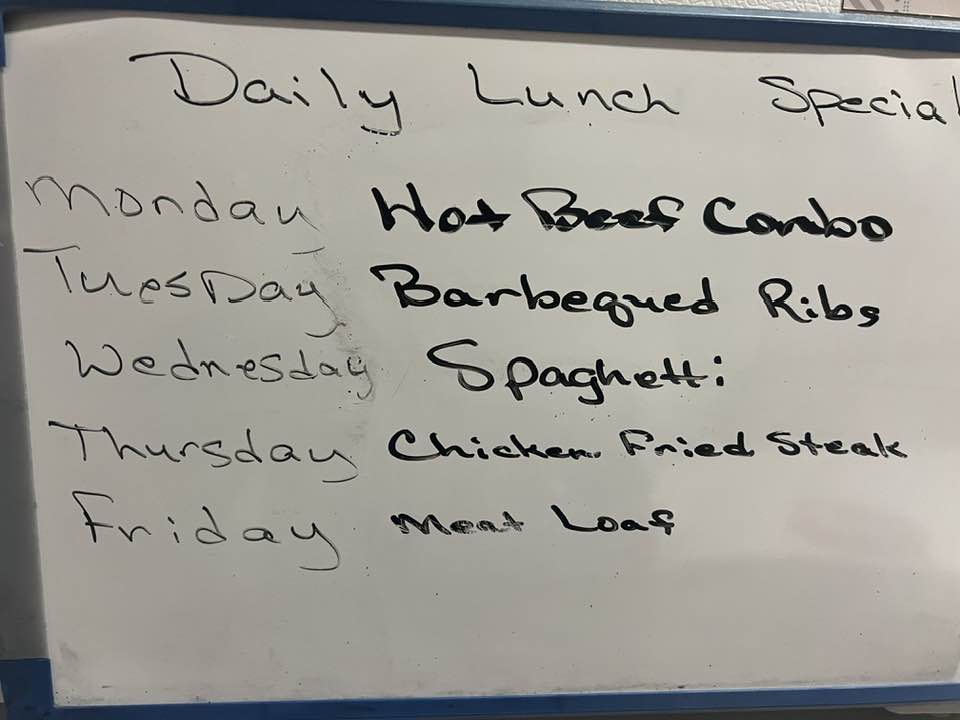 Daily Lunch Special
Monday Hot Beef Combo
TuesDay Barbequed Ribs
Wednesday Spaghetti
Thursday Chicken Fried Steak
Friday Meat Loaf